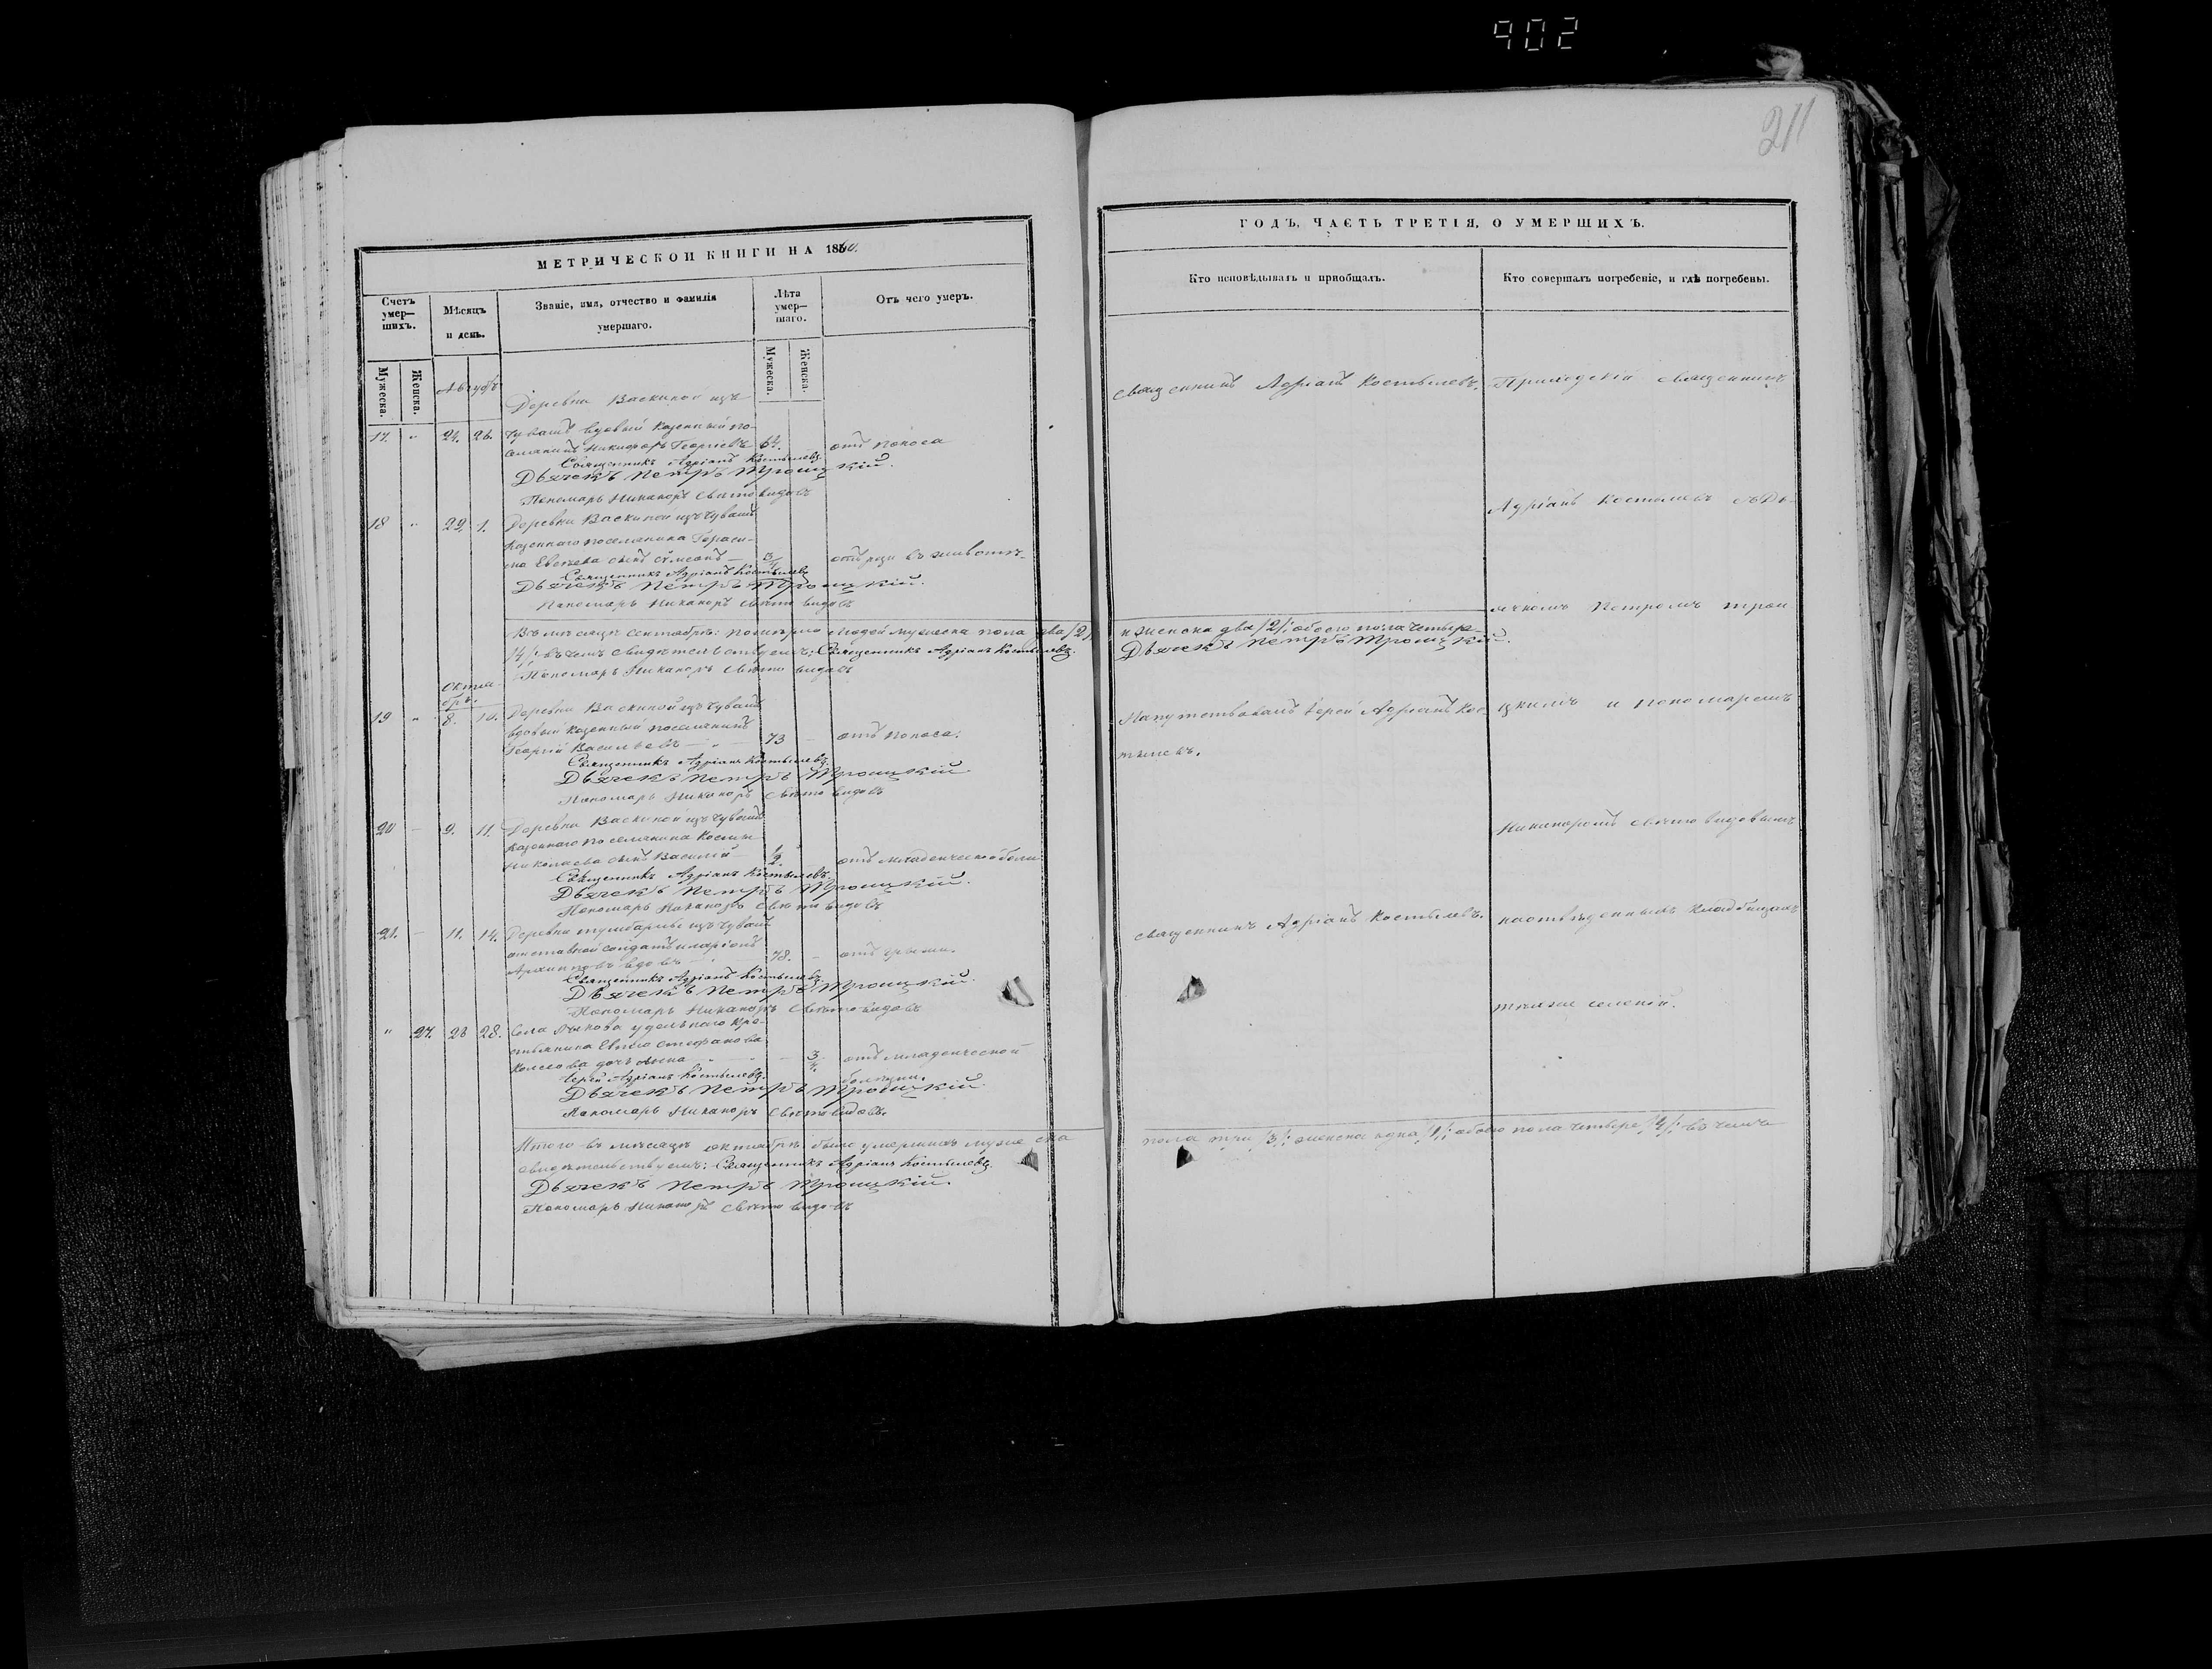 902
211
МЕТРИЧЕСКОЙ КНИГИ НА 1860.
Счетъ умер-шихъ.
Мѣсяцъ и день.
Званіе, имя, отчество и фамилія умершаго.
Лѣта умер-шаго.
Отъ чего умеръ.
Мужеска.
Женска.
Мужеска.
Женска.
Деревни Васкиной изъ
17. " 24. 26. Чувашъ вдовый казенный по-
селянинъ Никифоръ Георгіевъ 64. отъ поноса
Священникъ Адріанъ Костылевъ
Дьячекъ Петръ Троицкій.
Пономарь Никаноръ Святовидовъ
18 " 29. 1. Деревни Васкиной изъ Чувашъ
казеннаго поселянина Гераси-
ма сынъ отъ рези въ животѣ
Священникъ Адріанъ Костылевъ
Дьячекъ Петръ Троицкій.
Пономарь Никаноръ Святовидовъ
Въ мѣсяцѣ Сентябрѣ: померло людей мужеска пола два /2/
/4/: въ чемъ свидѣтельствуемъ: Священникъ Адріанъ Костылевъ.
Пономарь Никаноръ Святовидовъ
Октя-
брь.
19 " 8. 10. Деревни Васкиной изъ Чувашъ
вдовый казенный поселянинъ
Георгій Васильевъ — " — 73 — отъ поноса.
Священникъ Адріанъ Костылевъ
Дьячекъ Петръ Троицкій
Пономарь Никаноръ Святовидовъ
20 — 9. 11. Деревни Васкиной изъ Чувашъ
казеннаго поселянина Космы
Николаева сынъ Василій 1/2. отъ младенческой болѣ.
Священникъ Адріанъ Костылевъ.
Дьячекъ Петръ Троицкій.
Пономарь Никаноръ Святовидовъ
21. — 11. 14. Деревни изъ Чувашъ
отставной солдатъ Иларіонъ
Архиповъ вдовъ 78. — отъ грыжи.
Священникъ Адріанъ Костылевъ
Дьячекъ Петръ Троицкій.
Пономарь Никаноръ Святовидовъ
" 27. 26 28. Села удѣльнаго кре-
стьянина Стефанова
дочь 3/4. отъ младенческой
болѣзни.
Іерей Адріанъ Костылевъ.
Дьячекъ Петръ Троицкій.
Пономарь Никаноръ Святовидовъ.
Итого въ мѣсяцѣ октябрѣ было умершихъ мужеска
свидѣтельствуемъ: Священникъ Адріанъ Костылевъ.
Дьячекъ Петръ Троицкій.
Пономарь Никаноръ Святовидовъ
ГОДЪ, ЧАСТЬ ТРЕТІЯ, О УМЕРШИХЪ.
Кто исповѣдывалъ и пріобщалъ.
Кто совершалъ погребеніе, и гдѣ погребены.
Священникъ Адріанъ Костылевъ.
и женска два /2/: обоего пола четыре
Дьячекъ Петръ Троицкій.
Напутствовалъ Іерей Адріанъ Кос-
тылевъ.
Священникъ Адріанъ Костылевъ.
Приходскій священникъ
Адріанъ Костылевъ съ Дь-
ячкомъ Петромъ Трои
цкимъ и Пономаремъ
Никаноромъ Святовидовымъ
на отведенныхъ кладбищахъ
тѣхже селеній.
пола три /3/: женска одна /1/: обоего пола четыре /4/: въ чемъ